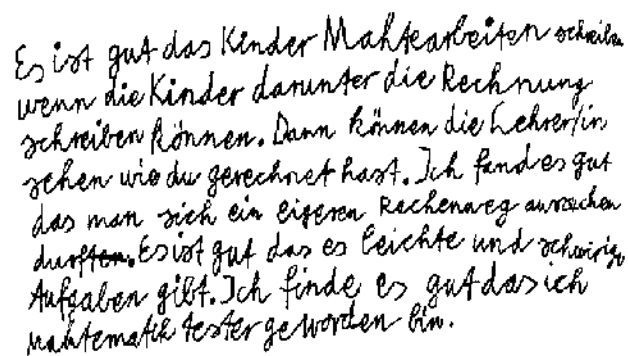 Es ist gut das Kinder Mahtearbeiten schreiben
wenn die Kinder darunter die Rechnung
schreiben können. Dann können die Lehrer/in
sehen wie du gerechnet hast. Ich fand es gut
das man sich ein eigenen Rechenweg aussuchen
durften. Es ist gut das es leichte und schwirige
Aufgaben gibt. Ich finde es gut das ich
Mahtematik tester geworden bin.